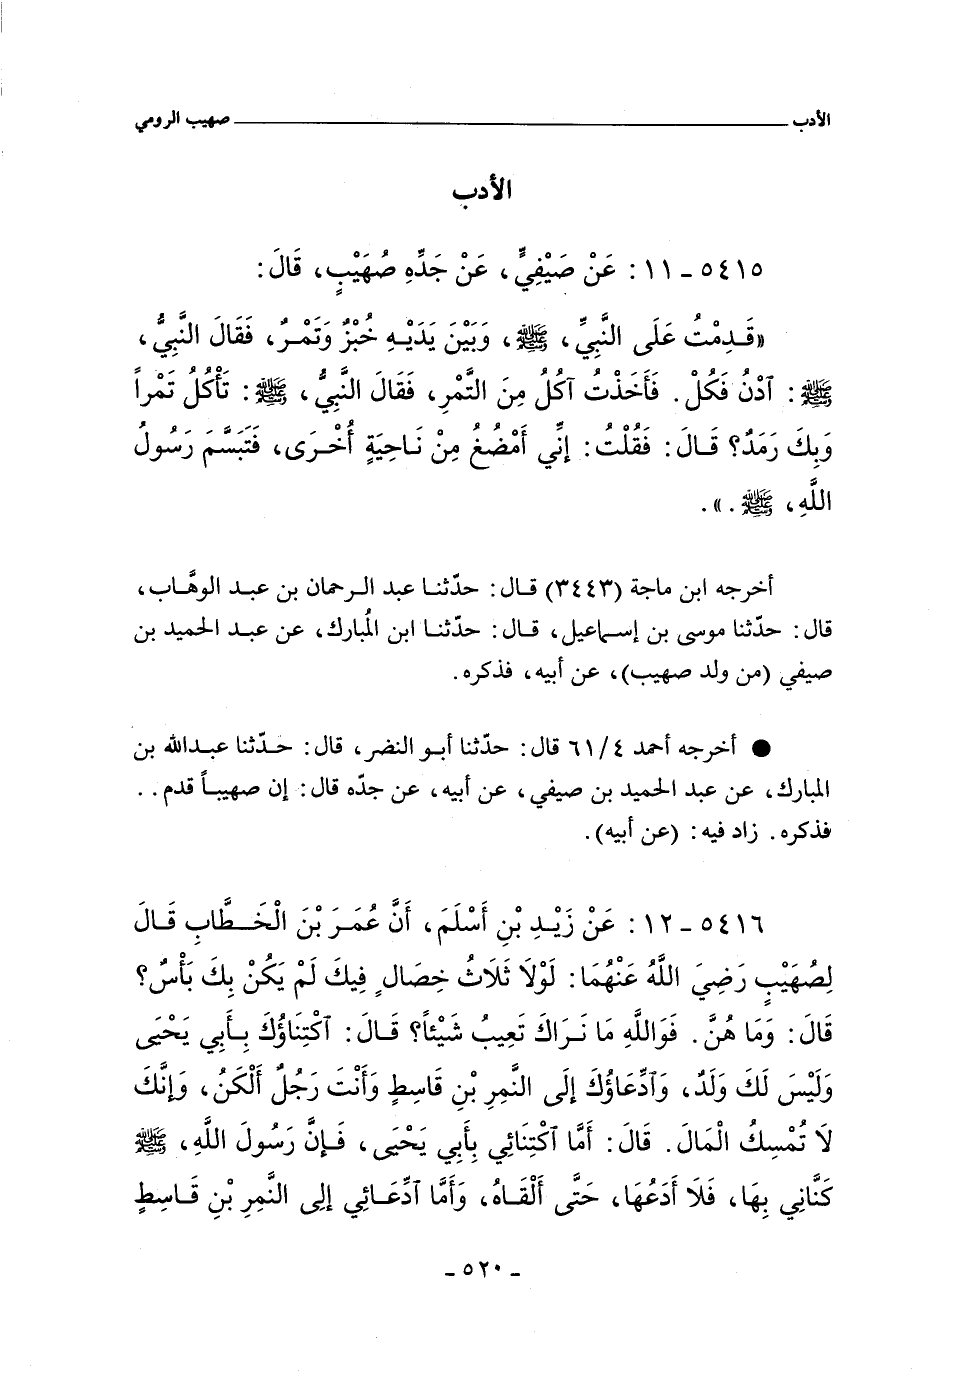 الأدب ــــــــ صهيب الرومي
الأدب
٥٤١٥ ـ ١١ : عَنْ صَيْفِيٍّ، عَنْ جَدِّهِ صُهَيْبٍ، قَالَ:
«قَـدِمْتُ عَلَى النَّبِيِّ، ﷺ، وَبَيْنَ يَدَيْـهِ خُبْزٌ وَتَمْـرٌ، فَقَالَ النَّبِيُّ،
ﷺ: آدْنُ فَكُلْ. فَأَخَذْتُ آكُلُ مِنَ التَّمْرِ، فَقَالَ النَّبِيُّ، ﷺ: تَأْكُلُ تَمْراً
وَبِكَ رَمَدٌ؟ قَـالَ: فَقُلْتُ: إِنِّي أَمْضُغُ مِنْ نَـاحِيَةٍ أُخْـرَى، فَتَبَسَّمَ رَسُولُ
اللَّهِ، ﷺ.».
أخرجه ابن ماجة (٣٤٤٣) قـال: حدّثنـا عبد الـرحمان بن عبـد الوهَّـاب،
قال: حدّثنا موسى بن إسـماعيل، قـال: حدّثنـا ابن المُبارك، عن عبـد الحميد بن
صيفي (من ولد صهيب)، عن أبيه، فذكره.
● أخرجه أحمد ٤/ ٦١ قال: حدّثنا أبـو النضر، قال: حـدّثنا عبـدالله بن
المبارك، عن عبد الحميد بن صيفي، عن أبيه، عن جدّه قال: إن صهيبـاً قدم . .
فذكره. زاد فيه: (عن أبيه).
٥٤١٦ ـ ١٢ : عَنْ زَيْـدِ بْنِ أَسْلَمَ، أَنَّ عُمَـرَ بْنَ الْخَــطَّابِ قَـالَ
لِصُهَيْبٍ رَضِيَ اللَّهُ عَنْهُمَا: لَوْلَا ثَلَاثُ خِصَالٍ فِيكَ لَمْ يَكُنْ بِكَ بَأْسٌ؟
قَالَ: وَمَا هُنَّ. فَوَاللَّهِ مَا نَـرَاكَ تَعِيبُ شَيْئاً؟ قَـالَ: آكْتِنَاؤُكَ بِـأَبِي يَحْيَى
وَلَيْسَ لَكَ وَلَدٌ، وَآدِّعَاؤُكَ إِلَى النَّمِرِ بْنِ قَاسِطٍ وَأَنْتَ رَجُلٌ أَلْكَنُ، وَإِنَّكَ
لَا تُمْسِكُ الْمَالَ. قَالَ: أَمَّا آكْتِنَائِي بِأَبِي يَحْيَى، فَـإِنَّ رَسُولَ اللَّهِ، ﷺ
كَنَّانِي بِهَا، فَلَا أَدَعُهَا، حَتَّى أَلْقَـاهُ، وَأَمَّا آدِّعَـائِي إِلى النَّمِرِ بْنِ قَـاسِطٍ
ـ ٥٢٠ ـ